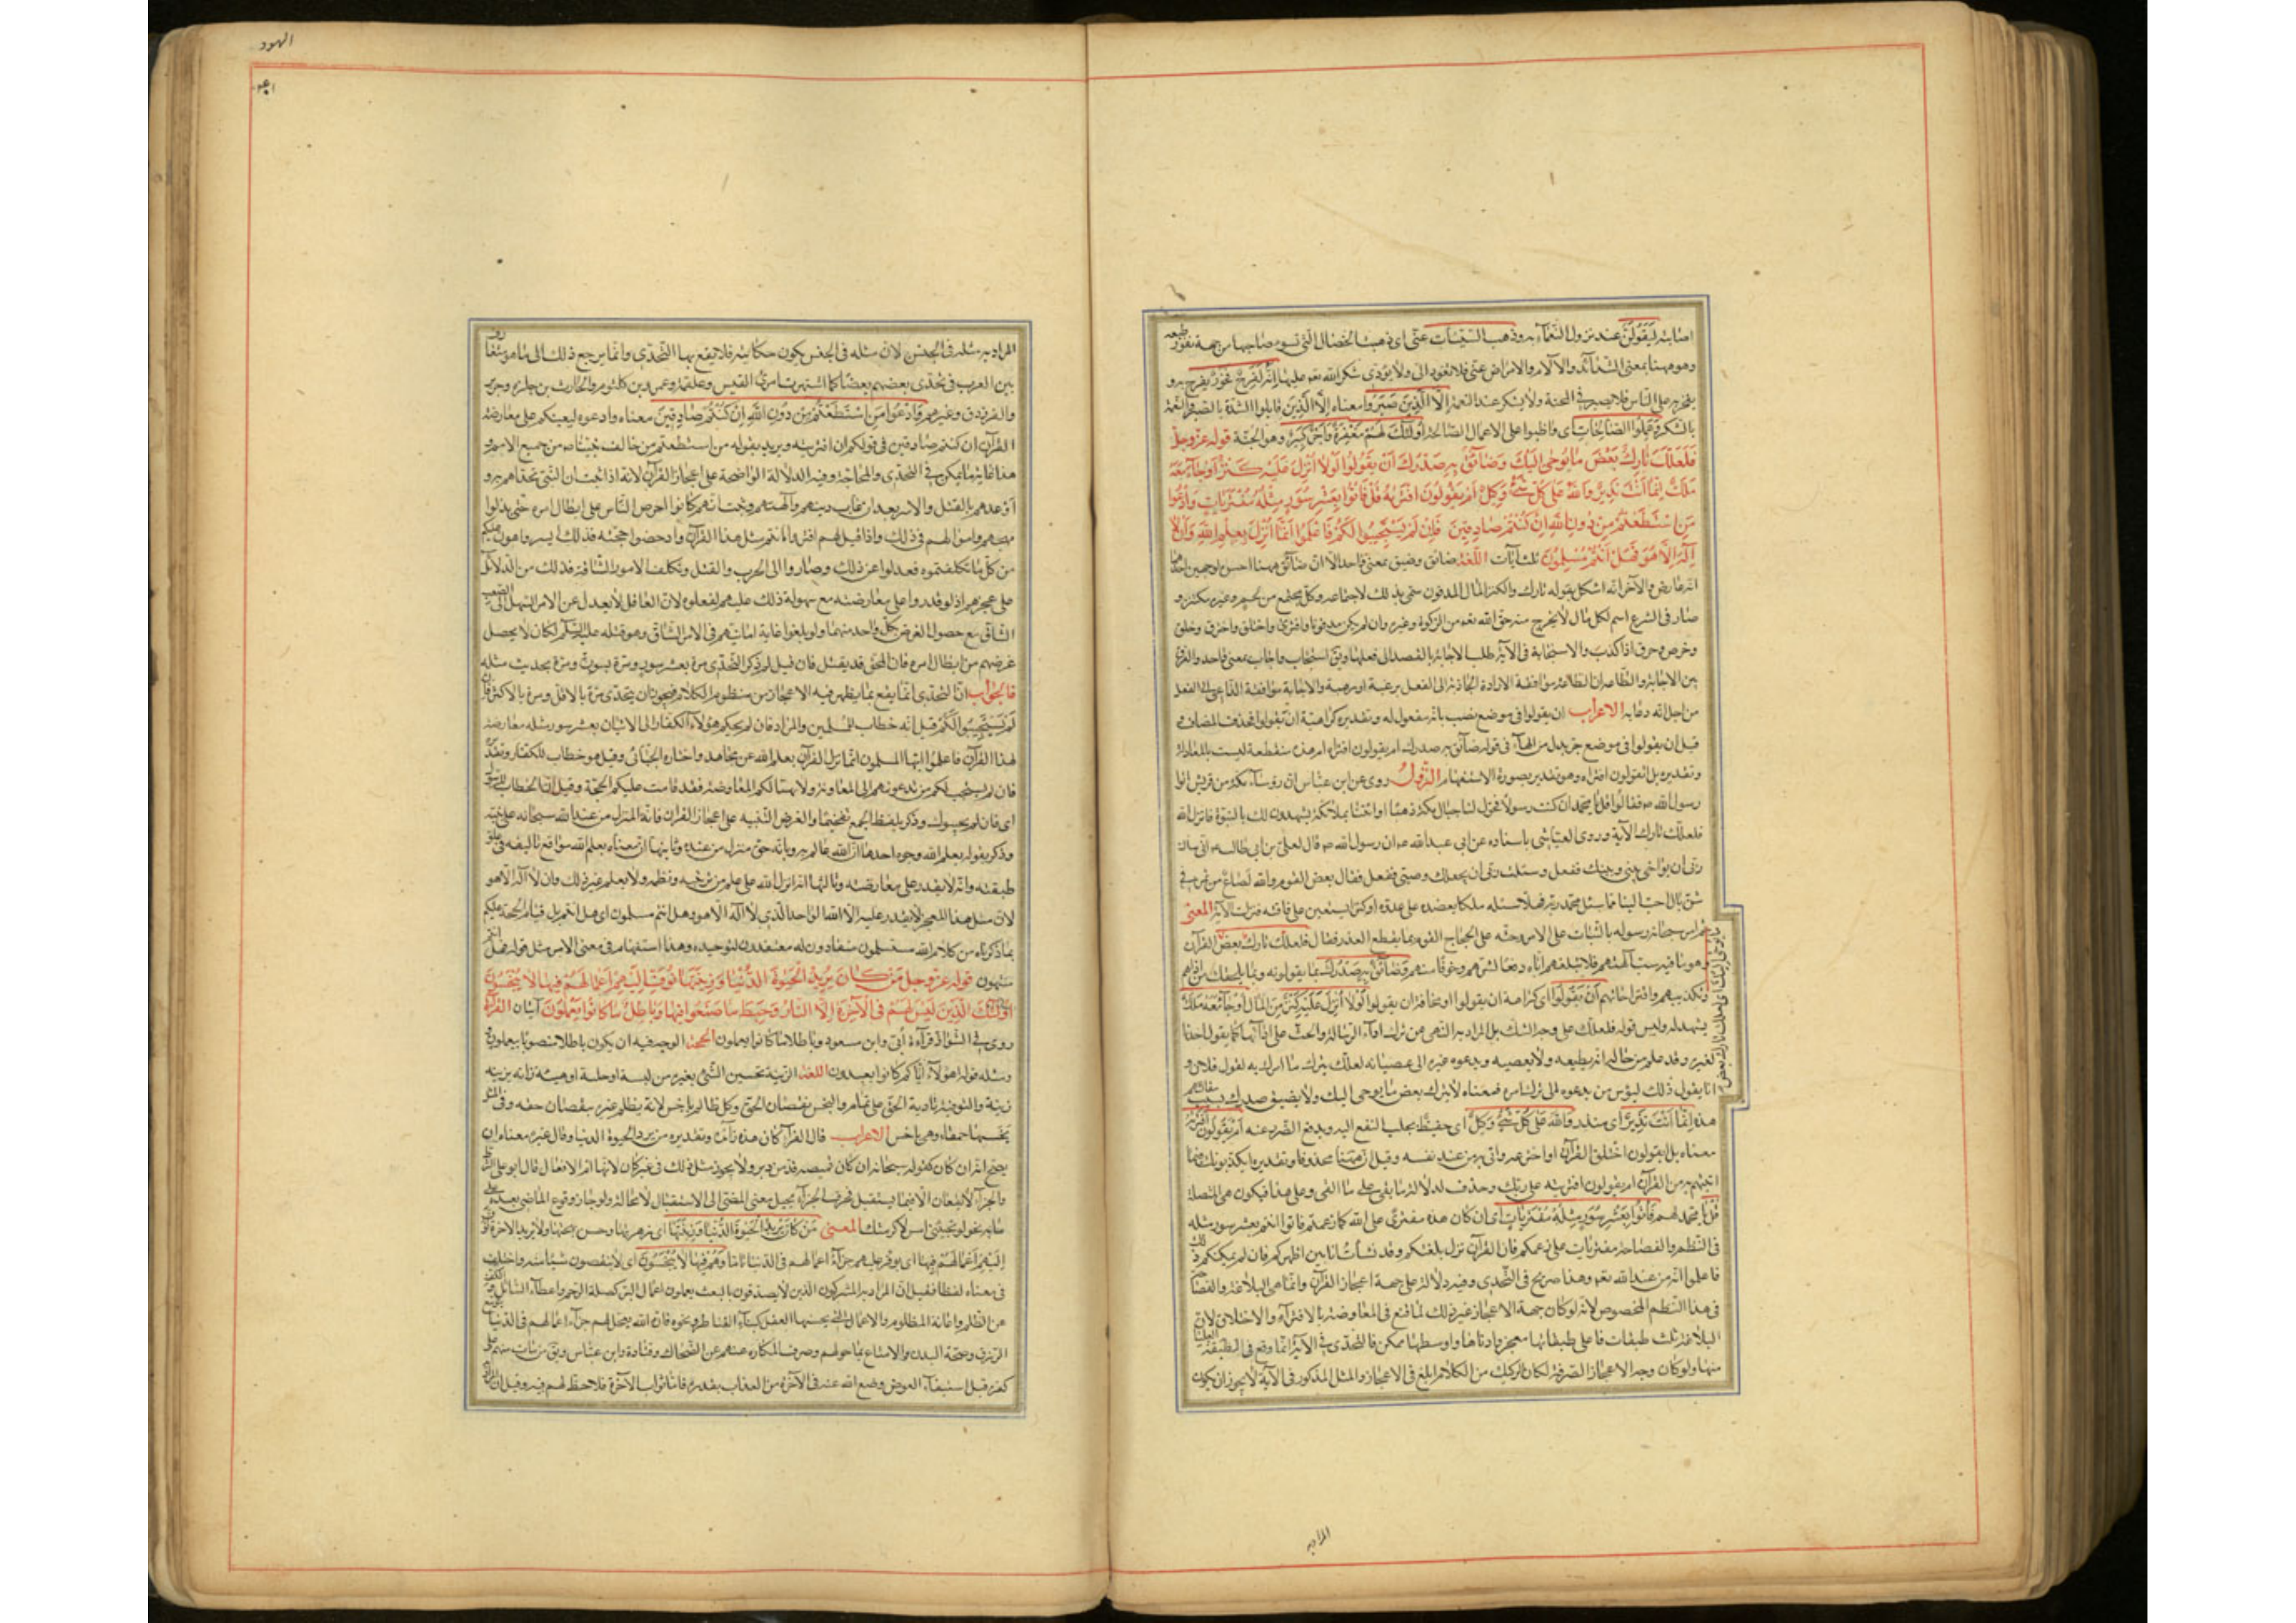 اصابته ليقولن عند نزول النعماء به وذهب السيئات عني اى ذهبت الخصال التي تسوء صاحبها من جهة نفور طبعه
وهو ههنا بمعنى الشدائد والآلام والامراض عني فلا تعود الى ولا يؤدى شكر الله تعه عليها انه لفرح فخور يفرح به و
يفخر به على الناس فلا يصبر في المحنة ولا يشكر عند النعمة الا الذين صبروا معناه الا الذين قابلوا الشدة بالصبر والنعمة
بالشكر وعملوا الصالحات اى واظبوا على الاعمال الصالحة اولئك لهم مغفرة واجر كبير وهو الجنة قوله عز وجل
فلعلك تارك بعض ما يوحى اليك وضائق به صدرك ان يقولوا لولا انزل عليه كنز او جاء معه
ملك انما انت نذير والله على كل شئ وكيل ام يقولون افتريه قل فاتوا بعشر سور مثله مفتريات وادعوا
من استطعتم من دون الله ان كنتم صادقين فان لم يستجيبوا لكم فاعلموا انما انزل بعلم الله وان لا
اله الا هو فهل انتم مسلمون ثلث آيات اللغة ضائق وضيق بمعنى واحد الا ان ضائق ههنا احسن لوجهين احدهما
انه عارض والآخر انه اشكل بقوله تارك والكنز المال المدفون سمى بذلك لاجتماعه وكل مجتمع من لحم وغيره مكتنز و
صار في الشرع اسم لكل مال لا يخرج منه حق الله تعه من الزكوة وغيره وان لم يكن مدفونا وافترى واختلق واخترق وخلق
وخرص وخرق اذا كذب والاستجابة في الآية طلب الاجابة بالقصد الى فعلها ويق استجاب واجاب بمعنى واحد والفرق
بين الاجابة والطاعة ان الطاعة موافقة الارادة الجاذبة الى الفعل برغبة او رهبة والاجابة موافقة الداعي الى الفعل
من اجل انه دعا به الاعراب ان يقولوا في موضع نصب بانه مفعول له وتقديره كراهية ان يقولوا فحذف المضاف و
قيل ان يقولوا في موضع جر بدل من الهاء في قوله ضائق به صدرك ام يقولون افتراه ام هذه منقطعة ليست بالمعادلة
وتقديره بل ايقولون افتراه وهو تقدير بصورة الاستفهام النزول روى عن ابن عباس ان رؤساء مكة من قريش اتوا
رسول الله ص فقالوا له يا محمد ان كنت رسولا فحول لنا جبال مكة ذهبا او ائتنا بملائكة يشهدون لك بالنبوة فانزل الله
فلعلك تارك الآية وروى العياشي باسناده عن ابي عبد الله ع ان رسول الله ص قال لعلي بن ابي طالب ع اني سالت
ربى ان يواخى بيني وبينك ففعل وسئلت ربى ان يجعلك وصيى ففعل فقال بعض القوم والله لصاع من تمر في
شن بال احب الينا مما سئل محمد ربه فهلا سئله ملكا يعضده على عدوه او كنزا يستعين به على فاقته فنزلت الآية المعنى
ثم امر سبحانه رسوله بالثبات على الامر وحثه على الحجاج القوم بما يقطع العذر فقال فلعلك تارك بعض القرآن
وهو ما فيه سب آلهتهم فلا تبلغهم اياه دفعا لشرهم وخوفا منهم وضائق به صدرك مما يقولونه وبما يلحقك من اذاهم
وتكذيبهم واقتراحاتهم ان يقولوا اى كراهة ان يقولوا او مخافة ان يقولوا لولا انزل عليه كنز من المال او جاء معه ملك
يشهد له وليس قوله فلعلك على وجه الشك بل المراد به النهى عن ترك اداء الرسالة والحث على ادائها كما يقول احدنا
لغيره وقد علم من حاله انه يطيعه ولا يعصيه ويدعوه غيره الى عصيانه لعلك تترك ما امرك به لقول فلان و
انما يقول ذلك ليؤيس من يدعوه الى ترك امره فمعناه لا تترك بعض ما يوحى اليك ولا يضيق صدرك بسبب مقالتهم
هذه انما انت نذير اى منذر والله على كل شئ وكيل اى حفيظ يجلب النفع اليه ويدفع الضرر عنه ام يقولون افتريه
معناه بل ايقولون اختلق القرآن او اخترعه واتى به من عند نفسه وقيل ان ههنا محذوفا وتقديره ايكذبونك فيما
اتيتهم به من القرآن ام يقولون افتريه على ربك وحذف لدلالة ما بقى على ما القى وعلى هذا فيكون هي المتصلة
قل يا محمد لهم فاتوا بعشر سور مثله مفتريات اى ان كان هذه مفترى على الله كما زعمتم فاتوا انتم بعشر سور مثله
في النظم والفصاحة مفتريات على زعمكم فان القرآن نزل بلغتكم وقد نشأت انا بين اظهركم فان لم يمكنكم ذلك
فاعلموا انه من عند الله تعه وهذا صريح في التحدى وفيه دلالة على جهة اعجاز القرآن وانما هي البلاغة والفصاحة
في هذا النظم المخصوص لانه لو كان جهة الاعجاز غير ذلك لما قنع في المعاوضة بالافتراء والاختلاق لان
البلاغة ثلث طبقات فاعلى طبقاتها معجز وادناها واوسطها ممكن فالتحدى في الآية انما وقع في الطبقة العليا
منها ولو كان وجه الاعجاز الصرفة لكان الركيك من الكلام ابلغ في الاعجاز والمثل المذكور في الآية لا يجوز ان يكون
المراد به
الهود
المراد به مثله في الجنس لان مثله في الجنس يكون حكايته فلا يقع بها التحدى وانما يرجع ذلك الى ما هو متعارف
بين العرب في تحدى بعضهم بعضا كما اشتهر من امرئ القيس وعلقمة وعمرو بن كلثوم والحارث بن حلزه وجرير
والفرزدق وغيرهم وادعوا من استطعتم من دون الله ان كنتم صادقين معناه وادعوه ليعينكم على معارضة
القرآن ان كنتم صادقين في قولكم ان افتريته ويريد بقوله من استطعتم من خالف نبينا ص من جميع الامم و
هذا غاية ما يمكن في التحدى والمحاجة وفيه الدلالة الواضحة على اعجاز القرآن لانه اذا ثبت ان النبي تحداهم به و
اوعدهم بالقتل والاسر بعد ان عاب دينهم وآلهتهم وثبت انهم كانوا احرص الناس على ابطال امره حتى بذلوا
مهجهم واموالهم في ذلك واذا قيل لهم افتروا انتم مثل هذا القرآن وادحضوا حجته فذلك ايسر واهون عليكم
من كل ما تكلفتموه فعدلوا عن ذلك وصاروا الى الحرب والقتل وتكلف الامور الشاقة فذلك من الدلائل
على عجزهم اذ لو قدروا على معارضته مع سهولة ذلك عليهم لفعلوه لان العاقل لا يعدل عن الامر السهل الى الصعب
الشاق مع حصول الغرض بكل واحد منهما ولو بلغوا غاية امانيهم في الامر الشاق وهو قتله عليه السلم لكان لا يحصل
غرضهم من ابطال امره فان المحق قد يقتل فان قيل لم ذكر التحدى مرة بعشر سور ومرة بسورة ومرة بحديث مثله
فالجواب ان التحدى انما يقع بما يظهر فيه الاعجاز من منظوم الكلام فيجوز ان يتحدى مرة بالاقل ومرة بالاكثر فان
لم يستجيبوا لكم قيل انه خطاب للمسلمين والمراد فان لم يجبكم هؤلاء الكفار الى الاتيان بعشر سور مثله معارضة
لهذا القرآن فاعلموا ايها المسلمون انما نزل القرآن بعلم الله عن مجاهد واختاره الجبائي وقيل هو خطاب للكفار وتقديره
فان لم يستجب لكم من تدعونهم الى المعاونة ولا يهيأ لكم المعاوضة فقد قامت عليكم الحجة وقيل ان الخطاب للرسول
اى فان لم يجيبوك وذكر بلفظ الجمع تفخيما والغرض التنبيه على اعجاز القرآن فانه المنزل من عند الله سبحانه على نبيه
وذكر بقوله بعلم الله وجوه احدها ان الله عالم به وبانه حق منزل من عنده وثانيها ان معناه بعلم الله مواقع تاليفه في علو
طبقته وانه لا يقدر على معارضته وثالثها انه انزل الله على علم من ترتيبه ونظمه ولا يعلم غيره ذلك وان لا اله الا هو
لان مثل هذا المعجز لا يقدر عليه الا الله الواحد الذى لا اله الا هو وهل انتم مسلمون اى هل انتم بعد قيام الحجة عليكم
بما ذكرناه من كلام الله مستسلمون منقادون له معتقدون لتوحيده وهذا استفهام في معنى الامر مثل قوله فهل انتم
منتهون قوله عز وجل من كان يريد الحيوة الدنيا وزينتها نوف اليهم اعمالهم فيها وهم فيها لا يبخسون
اولئك الذين ليس لهم في الآخرة الا النار وحبط ما صنعوا فيها وباطل ما كانوا يعملون آيتان القراءة
روى في الشواذ قراءة أبى وابن مسعود وباطلا ما كانوا يعملون الحجة الوجه فيه ان يكون باطلا منصوبا بيعملون
ومثله قوله اهؤلاء اياكم كانوا يعبدون اللغة الزينة تحسين الشئ بغيره من لبسة او حلية او هيئة زانه يزينه
زينة والتوفية تادية الحق على تمام والبخس نقصان الحق وكل ظالم باخس لانه يظلم غيره بنقصان حقه وفي المثل
تحسبها حمقاء وهى باخس الاعراب قال الفراء كان هذه زائدة وتقديره من يرد الحيوة الدنيا وقال غيره معناه ان
يصح انه ان كان كقوله سبحانه ان كان قميصه قد من دبر ولا يجوز مثل ذلك في غير كان لانها ام الافعال قال ابو علي الشرط
والجزاء لا يقعان الا فيما يستقبل فحرف الجزاء يحيل معنى المضى الى الاستقبال لا محالة ولو جاز وقوع الماضي بعده على
بابه نحو لو جئتني امس لاكرمتك المعنى من كان يريد الحيوة الدنيا وزينتها اى زهرتها وحسن بهجتها ولا يريد الآخرة نوف
اليهم اعمالهم فيها اى نوفر عليهم جزاء اعمالهم في الدنيا تاما وهم فيها لا يبخسون اى لا ينقصون شيئا منه واختلف
في معناه لفظا فقيل ان المراد به المشركون الذين لا يصدقون بالبعث يعملون اعمال البر كصلة الرحم واعطاء السائل والكف
عن الظلم واغاثة المظلوم والاعمال التي يحسنها العقل كبناء القناطر ونحوه فان الله يعجل لهم جزاء اعمالهم في الدنيا بتوسيع
الرزق وصحة البدن والامتناع بما خولهم وصرف المكاره عنهم عن الضحاك وقتادة وابن عباس ويق من مات منهم على
كفره قبل استيفاء العوض وضع الله عنه في الآخرة من العذاب بقدره فاما ثواب الآخرة فلا حظ لهم فيه وقيل ان المراد